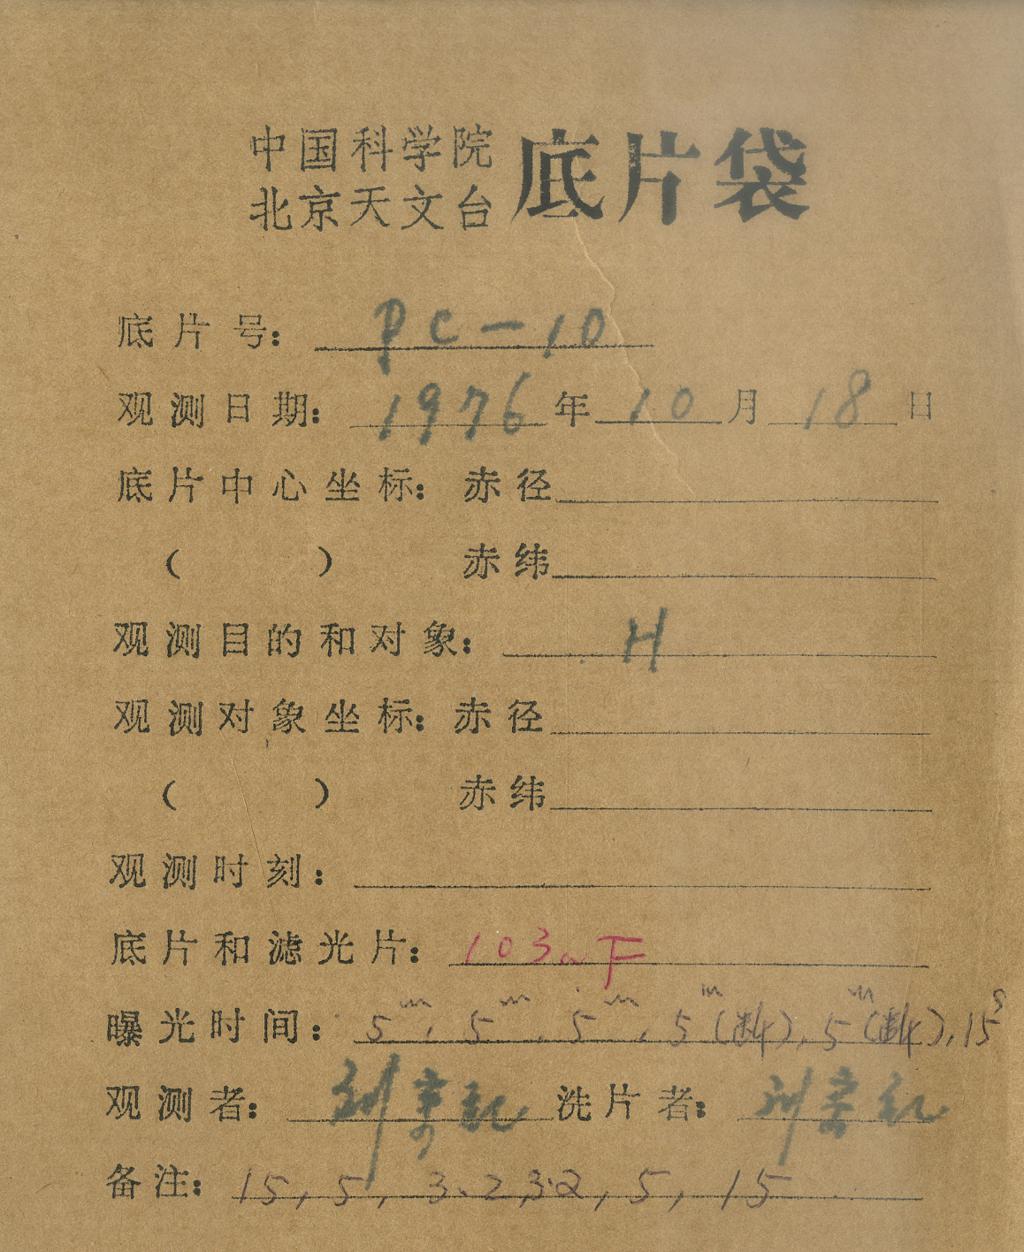 中国科学院
北京天文台 底片袋
底片号: PC-10
观测日期: 1976年10月18日
底片中心坐标: 赤径
( ) 赤纬
观测目的和对象: H
观测对象坐标: 赤径
( ) 赤纬
观测时刻:
底片和滤光片: 103aF
曝光时间: 5ᵐ, 5ᵐ, 5ᵐ, 5ᵐ(斜), 5ᵐ(斜), 15ˢ
观测者: 刘 洗片者: 刘
备注: 15, 5, 3.2, 3.2, 5, 15